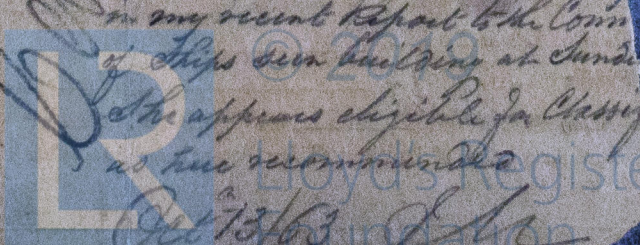 in my recent Report to the Com
of Ships seen building at Sunde
She appears eligible for Classif
as here recommended
Oct 13/63
LR
© 2019
Lloyd's Registe
Foundation